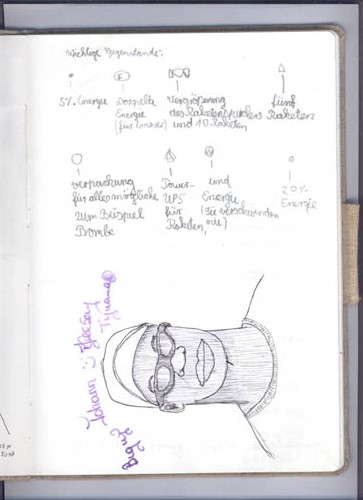 Wichtige Gegenstände:
5% Energie
Doppelte
Energie
(für immer)
Vergrößerung
des Raketenspeichers
und 10 Raketen
fünf
Raketen
Verpackung
für alles mögliche
zum Beispiel
Bombe
Power-
UPS
für
Raketen,
und
Energie
(Sie verschwinden
nie)
20%
Energie
Johann :)
Tijuana